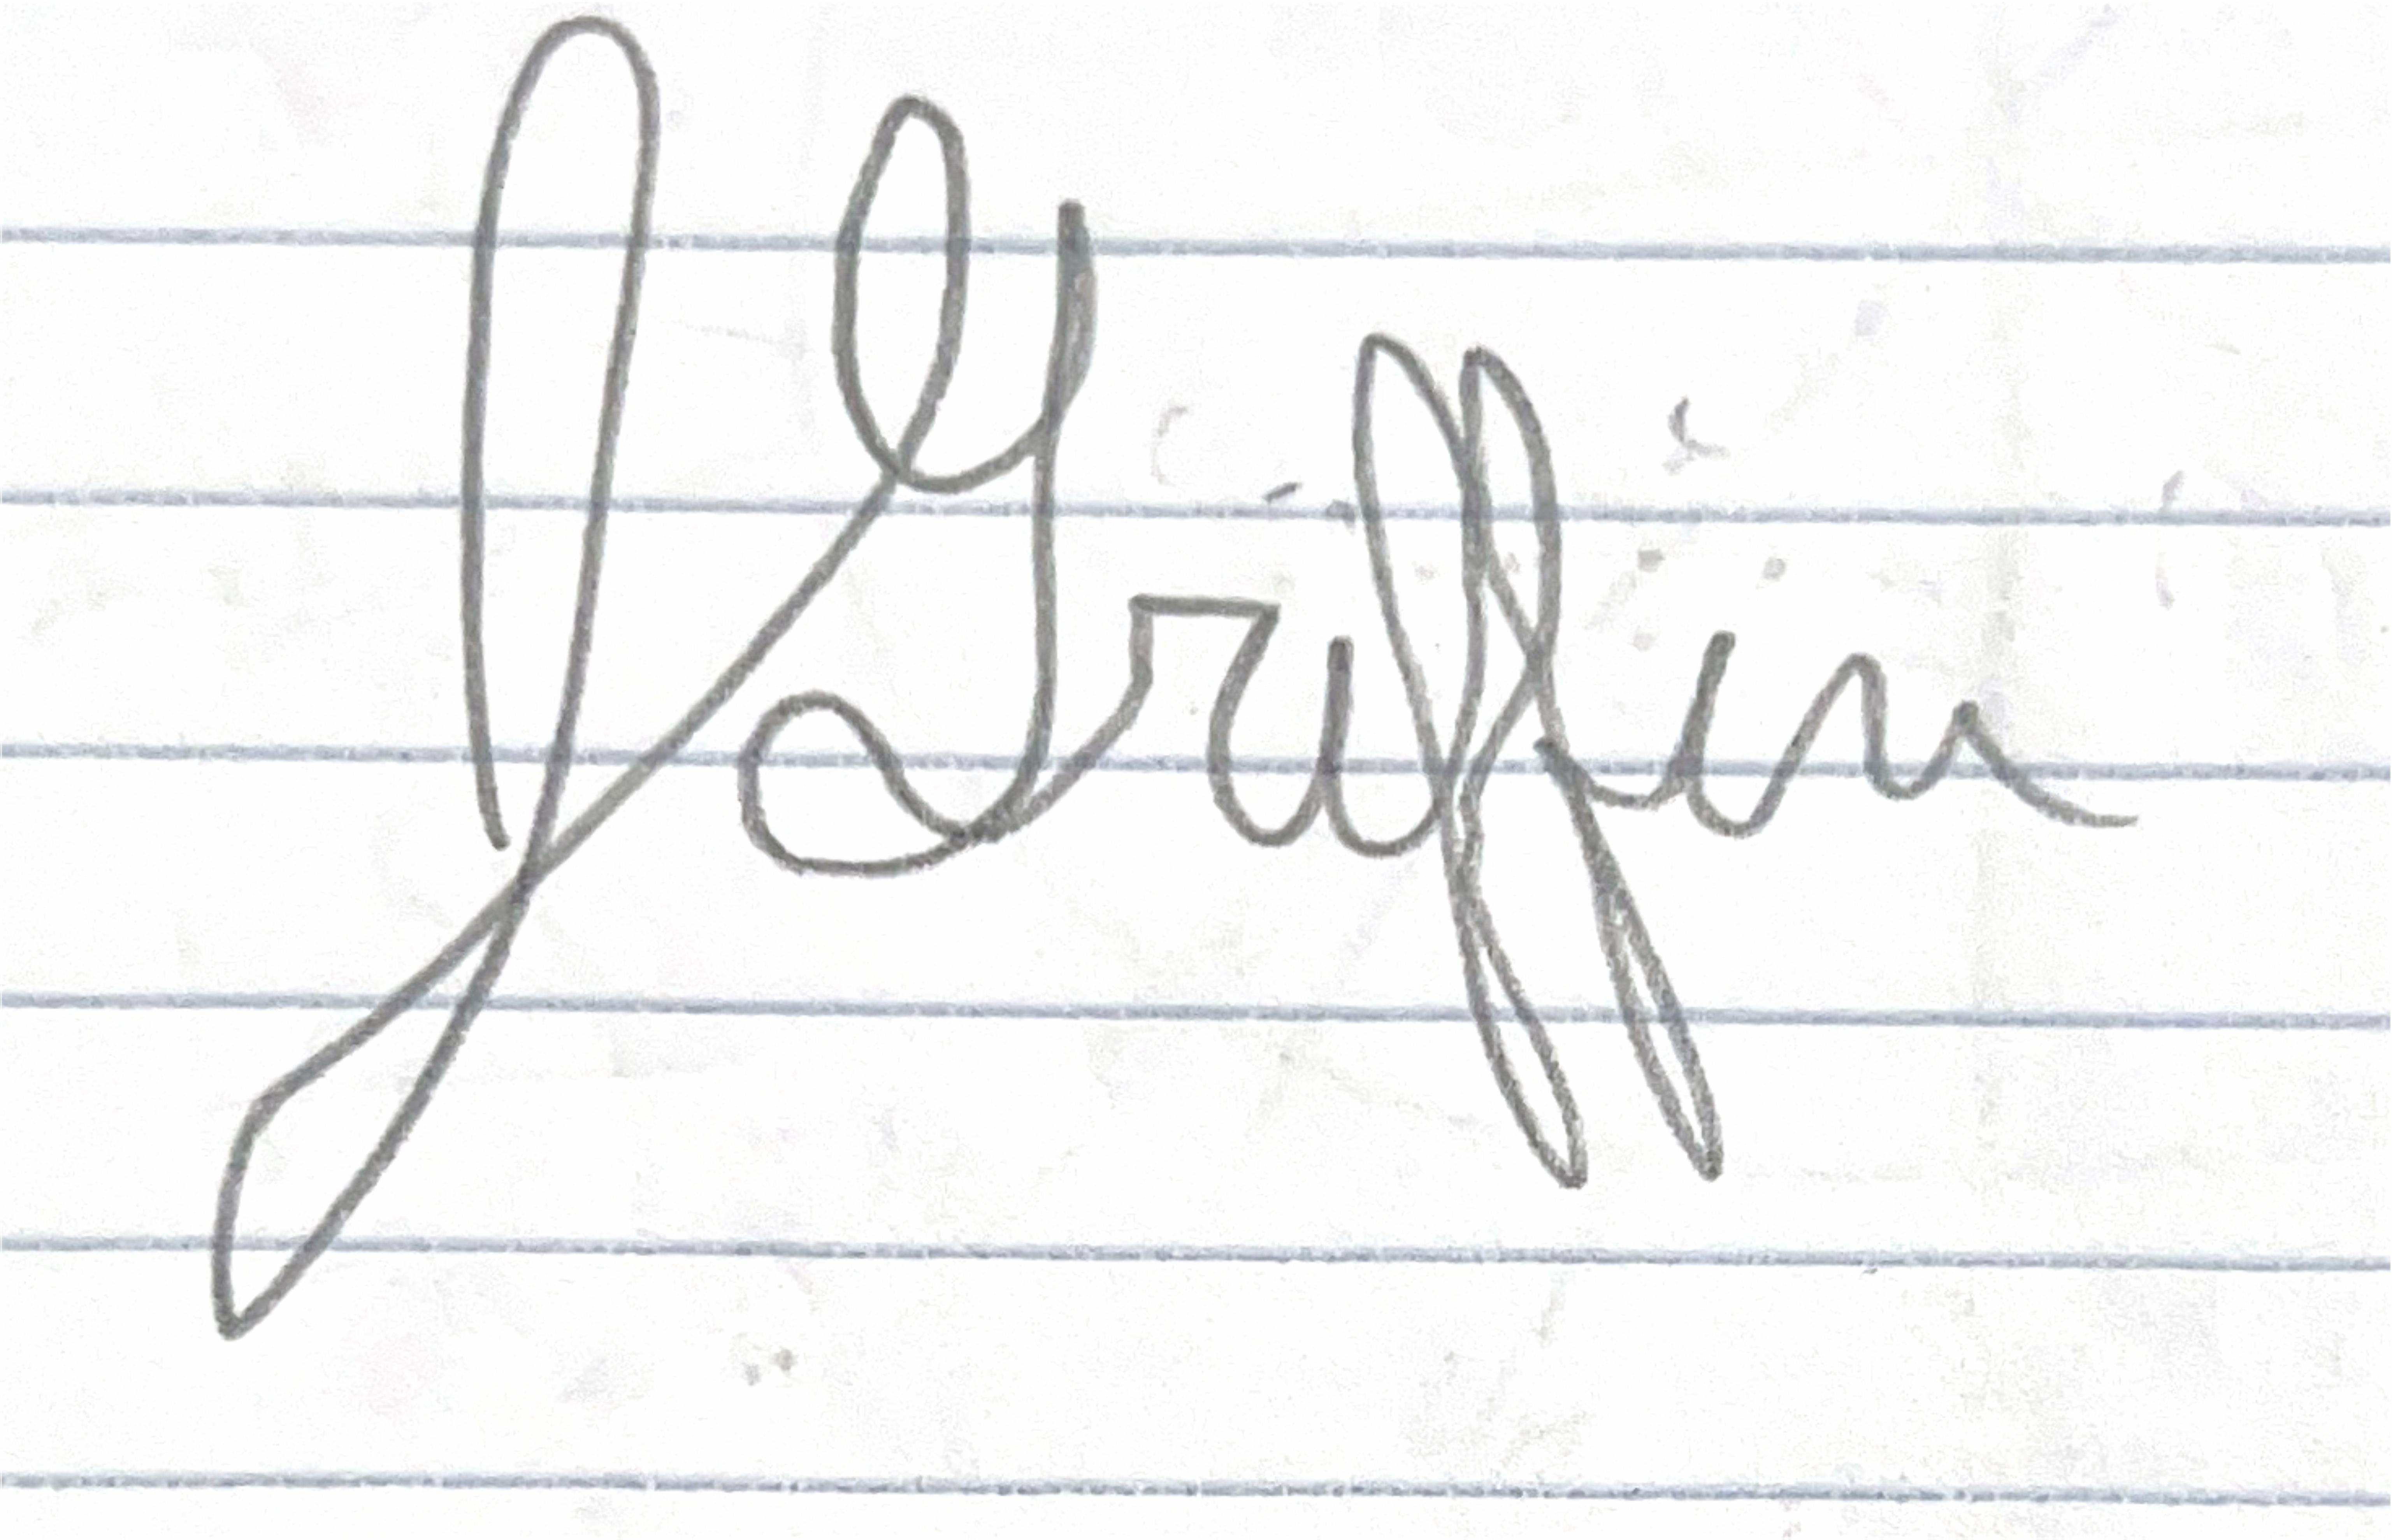 J Griffin